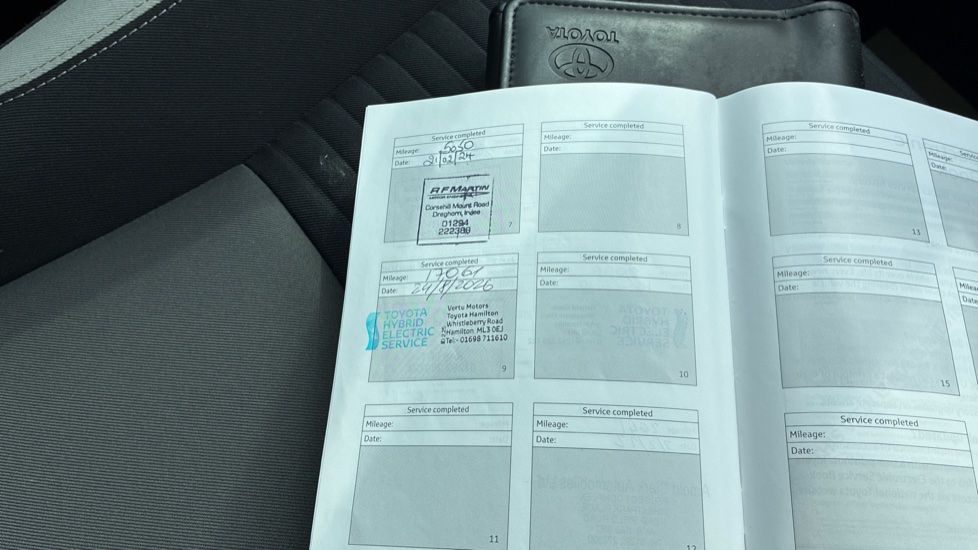 TOYOTA
Service completed
Mileage: 5050
Date: 21/02/24
R F MARTIN
Corsehill Mount Road
Dreghorn, Irvine
01294
222388
7
Service completed
Mileage:
Date:
8
Service completed
Mileage: 17061
Date: 24/8/2026
TOYOTA
HYBRID
ELECTRIC
SERVICE
Vertu Motors
Toyota Hamilton
Whistleberry Road
Hamilton ML3 0EJ
Tel:- 01698 711610
9
Service completed
Mileage:
Date:
10
Service completed
Mileage:
Date:
11
Service completed
Mileage:
Date:
12
Service completed
Mileage:
Date:
13
Mileage:
Date:
Service completed
Mileage:
Date:
15
Date:
Service completed
Mileage:
Date: